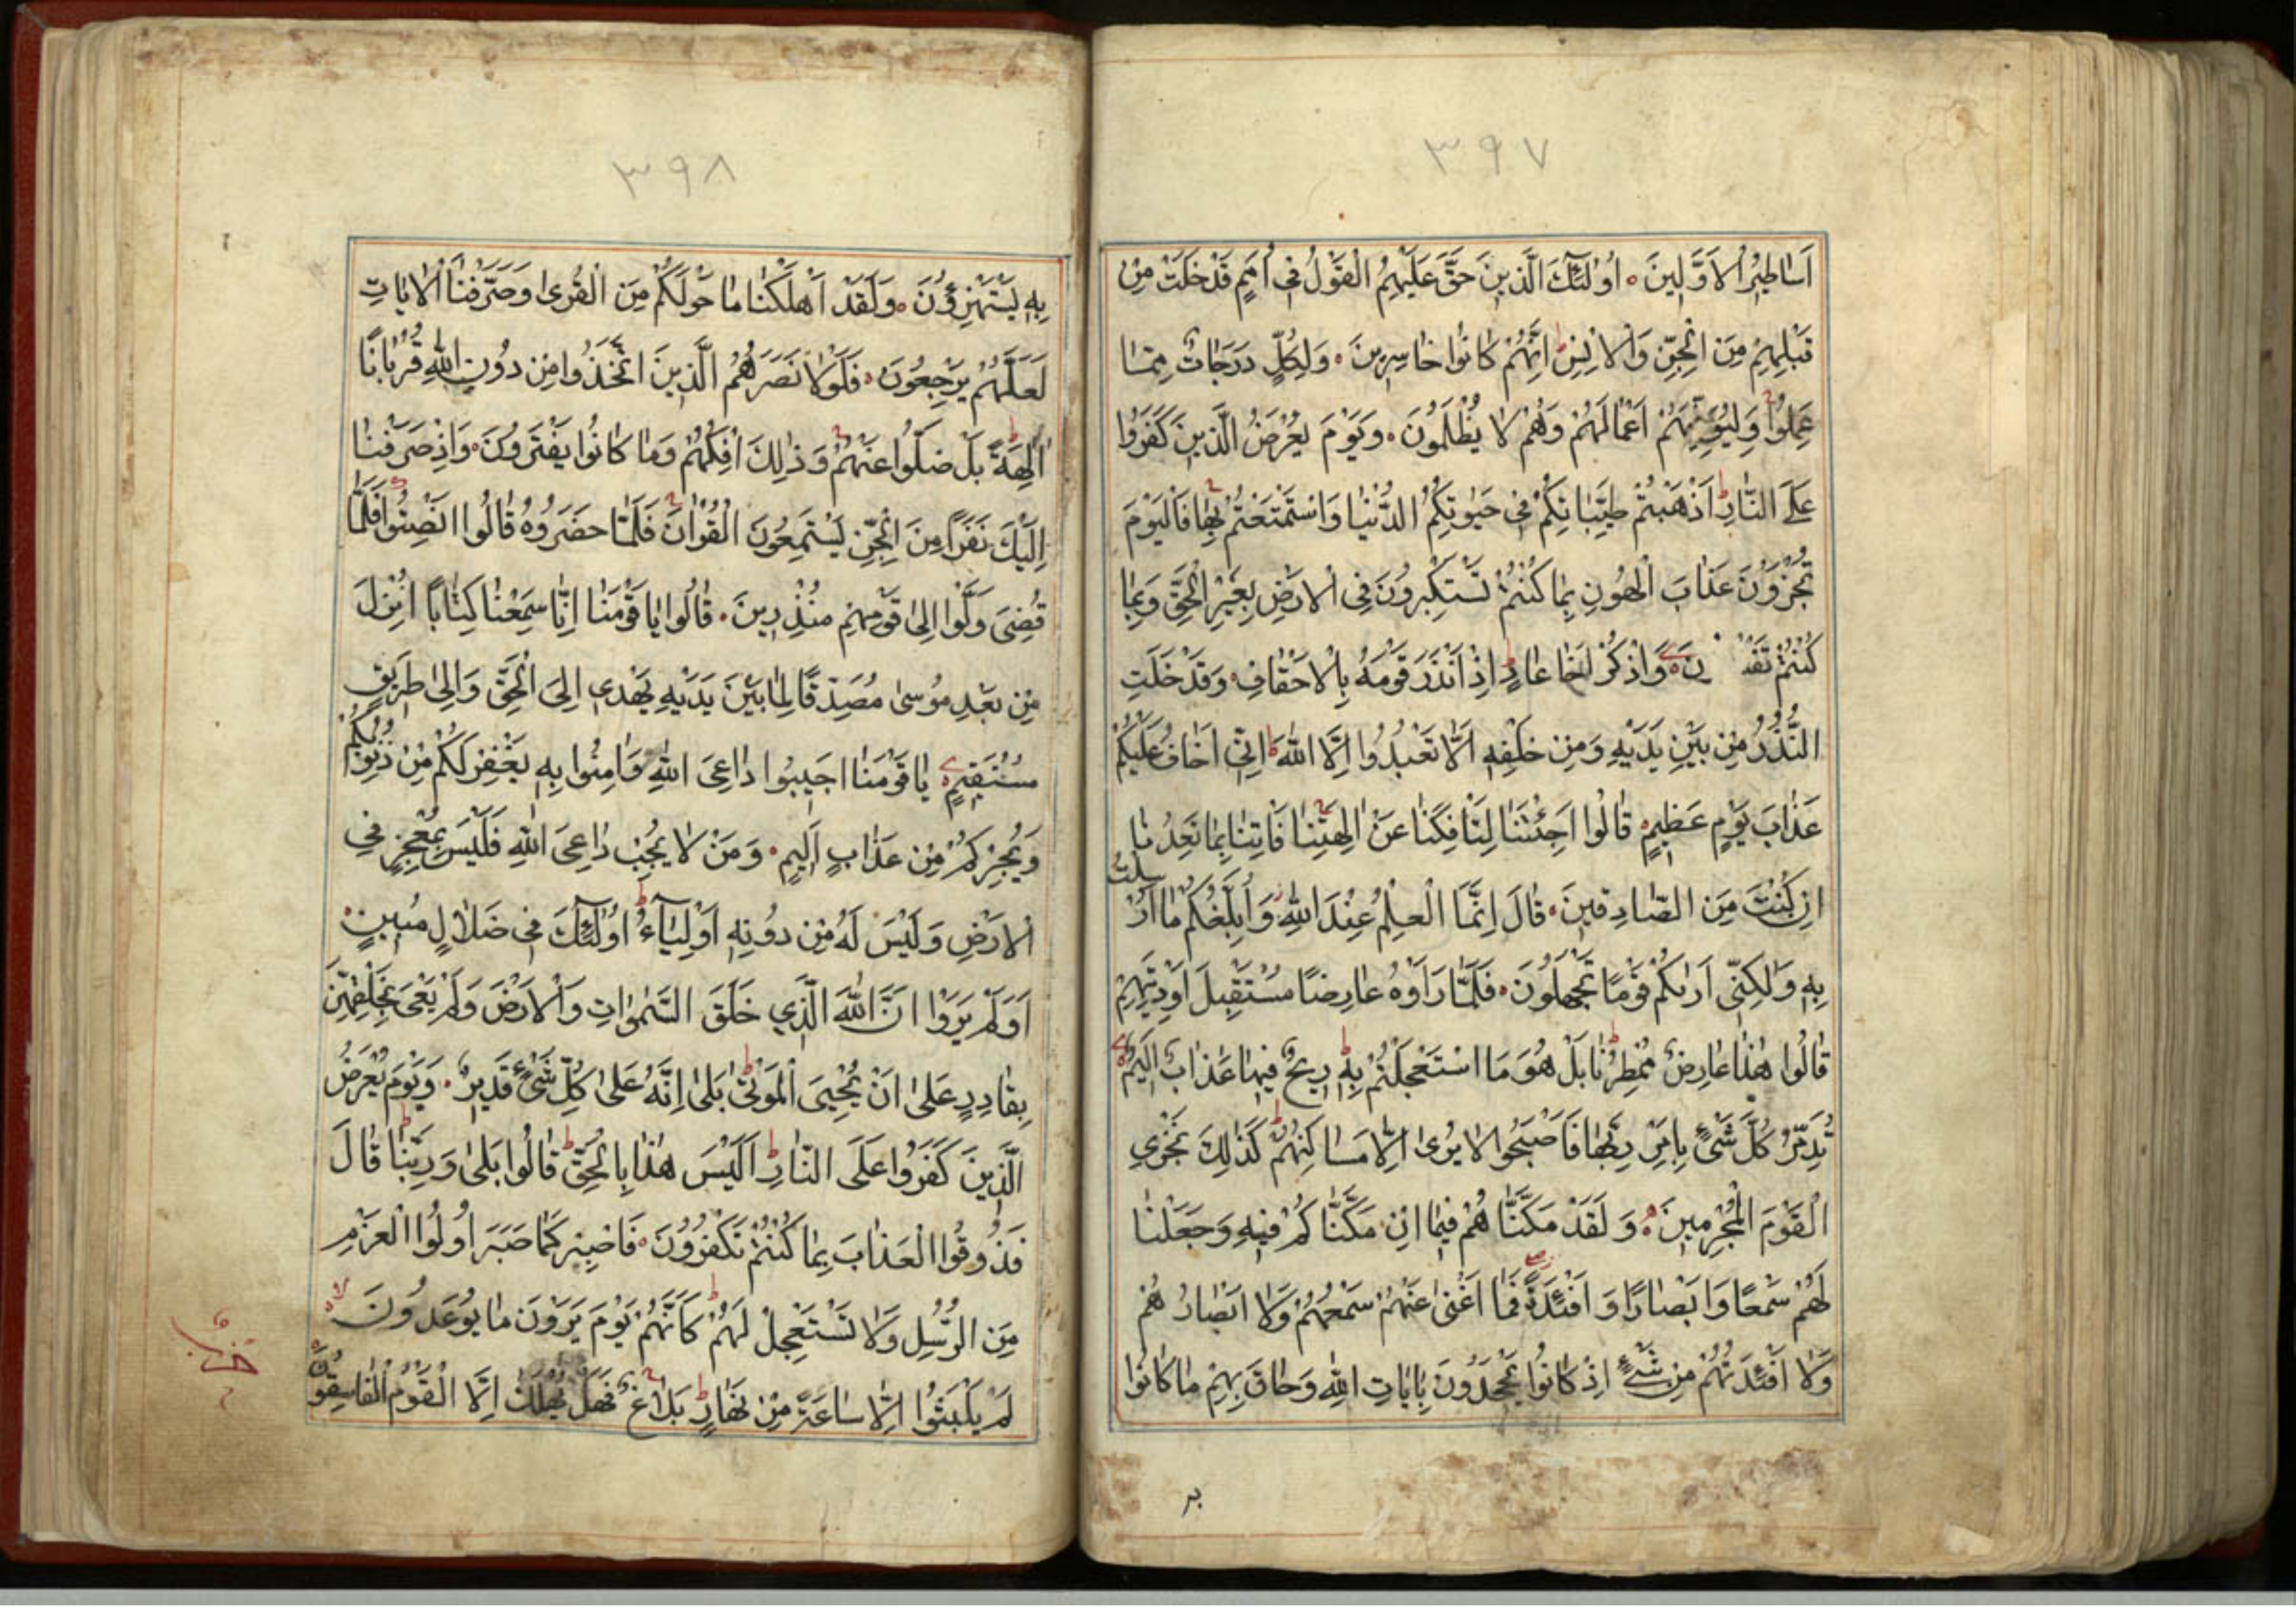 ٣٩٧
اَسٰاطيٖرُ الْاَوَّليٖنَ ۰ اُولٰٓئِكَ الَّذيٖنَ حَقَّ عَلَيْهِمُ الْقَوْلُ فيٖ اُمَمٍ قَدْ خَلَتْ مِنْ
قَبْلِهِمْ مِنَ الْجِنِّ وَالْاِنْسِ ط اِنَّهُمْ كٰانُوا خٰاسِريٖنَ ۰ وَلِكُلٍّ دَرَجٰاتٌ مِمّٰا
عَمِلُوا وَلِيُوَفِّيَهُمْ اَعْمٰالَهُمْ وَهُمْ لٰا يُظْلَمُونَ ۰ وَيَوْمَ يُعْرَضُ الَّذيٖنَ كَفَرُوا
عَلَى النّٰارِ ط اَذْهَبْتُمْ طَيِّبٰاتِكُمْ فيٖ حَيٰوتِكُمُ الدُّنْيٰا وَاسْتَمْتَعْتُمْ بِهٰا فَالْيَوْمَ
تُجْزَوْنَ عَذٰابَ الْهُونِ بِمٰا كُنْتُمْ تَسْتَكْبِرُونَ فِى الْاَرْضِ بِغَيْرِ الْحَقِّ وَبِمٰا
كُنْتُمْ تَفْ نَ ۰ وَاذْكُرْ اَخٰا عٰادٍ ط اِذْ اَنْذَرَ قَوْمَهُ بِالْاَحْقٰافِ وَقَدْ خَلَتِ
النُّذُرُ مِنْ بَيْنِ يَدَيْهِ وَمِنْ خَلْفِهٖ اَلّٰا تَعْبُدُوا اِلَّا اللّٰهَ ط اِنّيٖ اَخٰافُ عَلَيْكُمْ
عَذٰابَ يَوْمٍ عَظيٖمٍ ۰ قٰالُوا اَجِئْتَنٰا لِتَاْفِكَنٰا عَنْ اٰلِهَتِنٰا فَاْتِنٰا بِمٰا تَعِدُنٰا
اِنْ كُنْتَ مِنَ الصّٰادِقيٖنَ ۰ قٰالَ اِنَّمَا الْعِلْمُ عِنْدَ اللّٰهِ وَاُبَلِّغُكُمْ مٰا اُرْسِلْتُ
بِهٖ وَلٰكِنّيٖ اَرٰيكُمْ قَوْمًا تَجْهَلُونَ ۰ فَلَمّٰا رَاَوْهُ عٰارِضًا مُسْتَقْبِلَ اَوْدِيَتِهِمْ
قٰالُوا هٰذٰا عٰارِضٌ مُمْطِرُنٰا ط بَلْ هُوَ مَا اسْتَعْجَلْتُمْ بِهٖ ط ريٖحٌ فيٖهٰا عَذٰابٌ اَليٖمٌ
تُدَمِّرُ كُلَّ شَىْءٍ بِاَمْرِ رَبِّهٰا فَاَصْبَحُوا لٰا يُرٰى اِلّٰا مَسٰاكِنُهُمْ ط كَذٰلِكَ نَجْزِي
الْقَوْمَ الْمُجْرِميٖنَ ۰ وَلَقَدْ مَكَّنّٰاهُمْ فيٖمٰا اِنْ مَكَّنّٰاكُمْ فيٖهِ وَجَعَلْنٰا
لَهُمْ سَمْعًا وَاَبْصٰارًا وَاَفْئِدَةً فَمٰا اَغْنٰى عَنْهُمْ سَمْعُهُمْ وَلٰا اَبْصٰارُهُمْ
وَلٰا اَفْئِدَتُهُمْ مِنْ شَىْءٍ اِذْ كٰانُوا يَجْحَدُونَ بِاٰيٰاتِ اللّٰهِ وَحٰاقَ بِهِمْ مٰا كٰانُوا
٣٩٨
بِهٖ يَسْتَهْزِؤُنَ ۰ وَلَقَدْ اَهْلَكْنٰا مٰا حَوْلَكُمْ مِنَ الْقُرٰى وَصَرَّفْنَا الْاٰيٰاتِ
لَعَلَّهُمْ يَرْجِعُونَ ۰ فَلَوْلٰا نَصَرَهُمُ الَّذيٖنَ اتَّخَذُوا مِنْ دُونِ اللّٰهِ قُرْبٰانًا
اٰلِهَةً ط بَلْ ضَلُّوا عَنْهُمْ وَذٰلِكَ اِفْكُهُمْ وَمٰا كٰانُوا يَفْتَرُونَ ۰ وَاِذْ صَرَفْنٰا
اِلَيْكَ نَفَرًا مِنَ الْجِنِّ يَسْتَمِعُونَ الْقُرْاٰنَ فَلَمّٰا حَضَرُوهُ قٰالُوا اَنْصِتُوا فَلَمّٰا
قُضِىَ وَلَّوْا اِلٰى قَوْمِهِمْ مُنْذِريٖنَ ۰ قٰالُوا يٰا قَوْمَنٰا اِنّٰا سَمِعْنٰا كِتٰابًا اُنْزِلَ
مِنْ بَعْدِ مُوسٰى مُصَدِّقًا لِمٰا بَيْنَ يَدَيْهِ يَهْديٖ اِلَى الْحَقِّ وَاِلٰى طَريٖقٍ
مُسْتَقيٖمٍ يٰا قَوْمَنٰا اَجيٖبُوا دٰاعِىَ اللّٰهِ وَاٰمِنُوا بِهٖ يَغْفِرْ لَكُمْ مِنْ ذُنُوبِكُمْ
وَيُجِرْكُمْ مِنْ عَذٰابٍ اَليٖمٍ ۰ وَمَنْ لٰا يُجِبْ دٰاعِىَ اللّٰهِ فَلَيْسَ بِمُعْجِزٍ فِي
الْاَرْضِ وَلَيْسَ لَهُ مِنْ دُونِهٖ اَوْلِيٰٓاءُ ط اُولٰٓئِكَ فيٖ ضَلٰالٍ مُبيٖنٍ ۰
اَوَلَمْ يَرَوْا اَنَّ اللّٰهَ الَّذي خَلَقَ السَّمٰوٰاتِ وَالْاَرْضَ وَلَمْ يَعْىَ بِخَلْقِهِنَّ
بِقٰادِرٍ عَلٰى اَنْ يُحْيِىَ الْمَوْتٰى ط بَلٰى اِنَّهُ عَلٰى كُلِّ شَىْءٍ قَديٖرٌ ۰ وَيَوْمَ يُعْرَضُ
الَّذيٖنَ كَفَرُوا عَلَى النّٰارِ ط اَلَيْسَ هٰذٰا بِالْحَقِّ ط قٰالُوا بَلٰى وَرَبِّنٰا ط قٰالَ
فَذُوقُوا الْعَذٰابَ بِمٰا كُنْتُمْ تَكْفُرُونَ ۰ فَاصْبِرْ كَمٰا صَبَرَ اُولُوا الْعَزْمِ
مِنَ الرُّسُلِ وَلٰا تَسْتَعْجِلْ لَهُمْ ط كَاَنَّهُمْ يَوْمَ يَرَوْنَ مٰا يُوعَدُونَ لا
لَمْ يَلْبَثُوا اِلّٰا سٰاعَةً مِنْ نَهٰارٍ ط بَلٰاغٌ فَهَلْ يُهْلَكُ اِلَّا الْقَوْمُ الْفٰاسِقُونَ